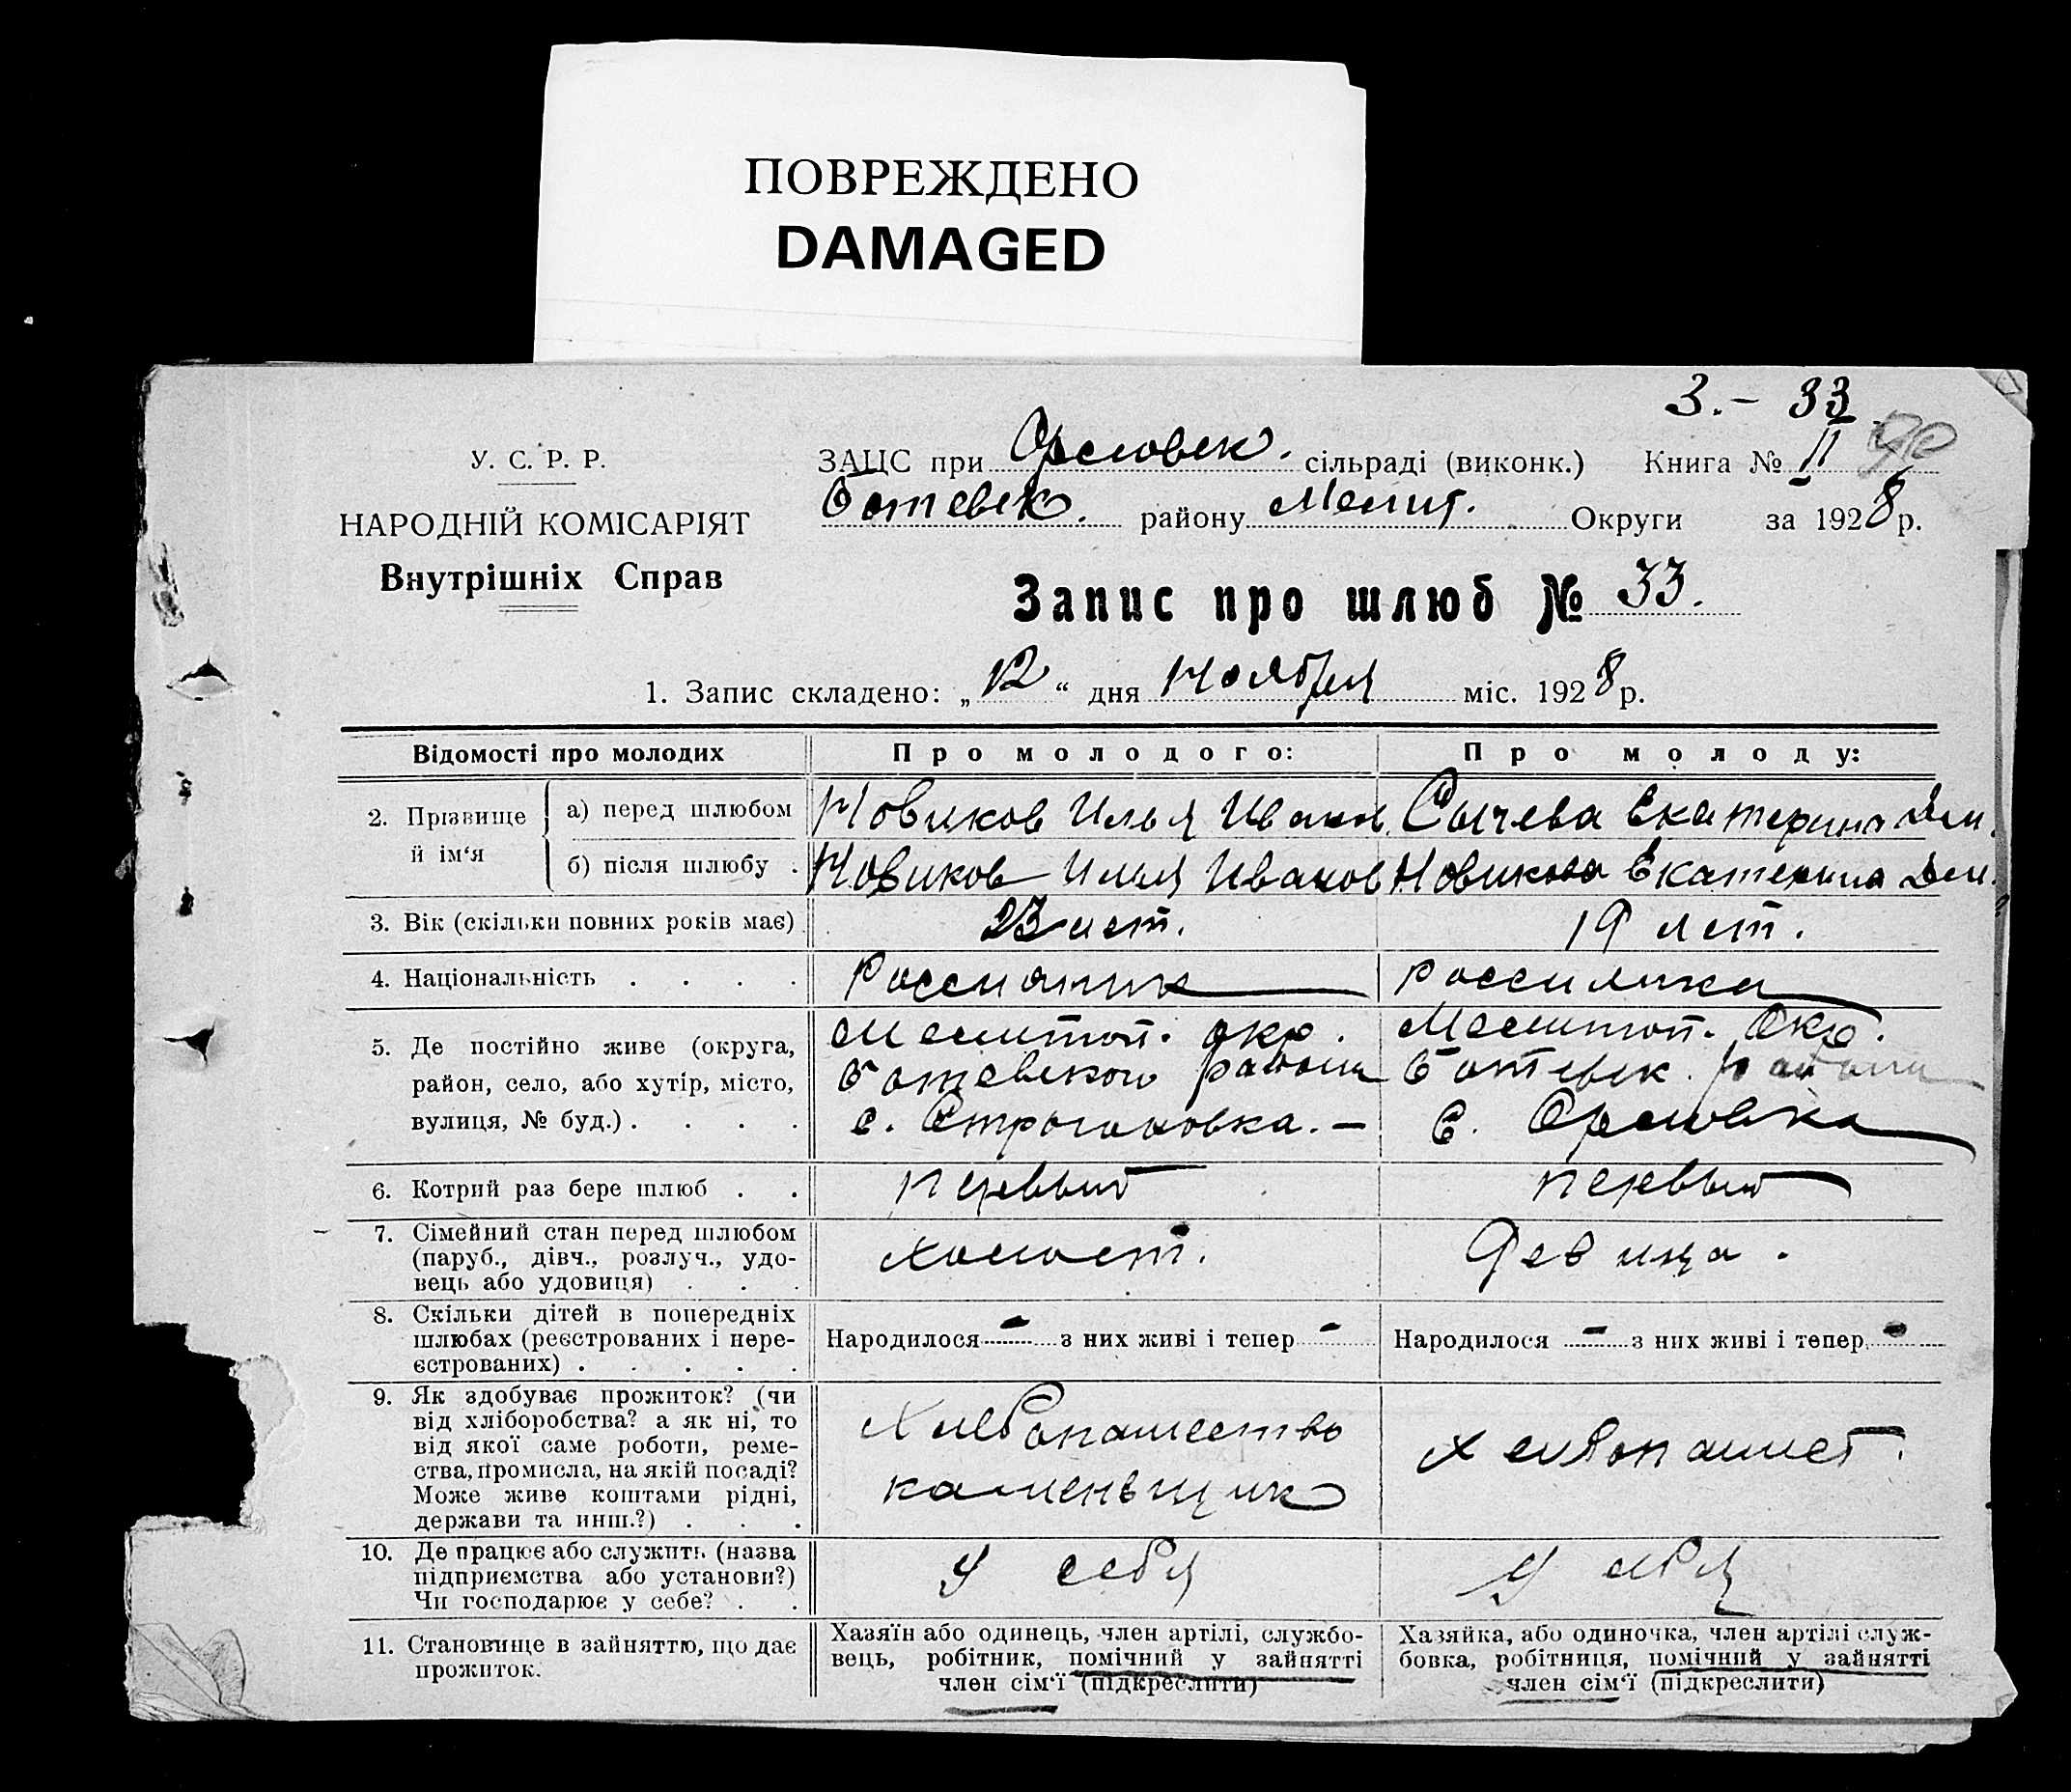 ПОВРЕЖДЕНО
DAMAGED
3.– 33
У. С. Р. Р.
НАРОДНІЙ КОМІСАРІЯТ
Внутрішніх Справ
ЗАЦС при Орловск. сільраді (виконк.) Книга № II 90
Ботевск. району Мелит. Округи за 1928 р.
Запис про шлюб № 33.
1. Запис складено: „ 12 “ дня Ноября міс. 1928 р.
Відомості про молодих Про молодого: Про молоду:
2. Прізвище й ім‘я
а) перед шлюбом Новиков Илья Иванов. Сычева Екатерина Дем.
б) після шлюбу . Новиков Илья Иванов Новикова Екатерина Дем.
3. Вік (скільки повних років має) 23 лет. 19 лет.
4. Національність . . . . Россиянин Россиянка
5. Де постійно живе (округа, Мелитоп. окр. Мелитоп. Окр.
район, село, або хутір, місто, Ботевского района Ботевск. района
вулиця, № буд.) . . . . с. Строгоновка. – с. Орловка
6. Котрий раз бере шлюб . . первый первый
7. Сімейний стан перед шлюбом
(паруб., дівч., розлуч., удо-
вець або удовиця) . . . холост. девица.
8. Скільки дітей в попередніх
шлюбах (реєстрованих і нере-
єстрованих) . . . . .
Народилося – з них живі і тепер –
Народилося – з них живі і тепер –
9. Як здобуває прожиток? (чи
від хліборобства? а як ні, то
від якої саме роботи, реме-
ства, промисла, на якій посаді?
Може живе коштами рідні,
держави та инш.?) . . .
Хлебопашество
каменьщик
Хлебопашест.
10. Де працює або служить (назва
підприємства або установи?)
Чи господарює у себе? . .
У себя
У себя
11. Становище в зайняттю, що дає
прожиток.
Хазяїн або одинець, член артілі, службо-
вець, робітник, помічний у зайнятті
член сім‘ї (підкреслити)
Хазяйка, або одиночка, член артілі служ-
бовка, робітниця, помічний у зайнятті
член сім‘ї (підкреслити)